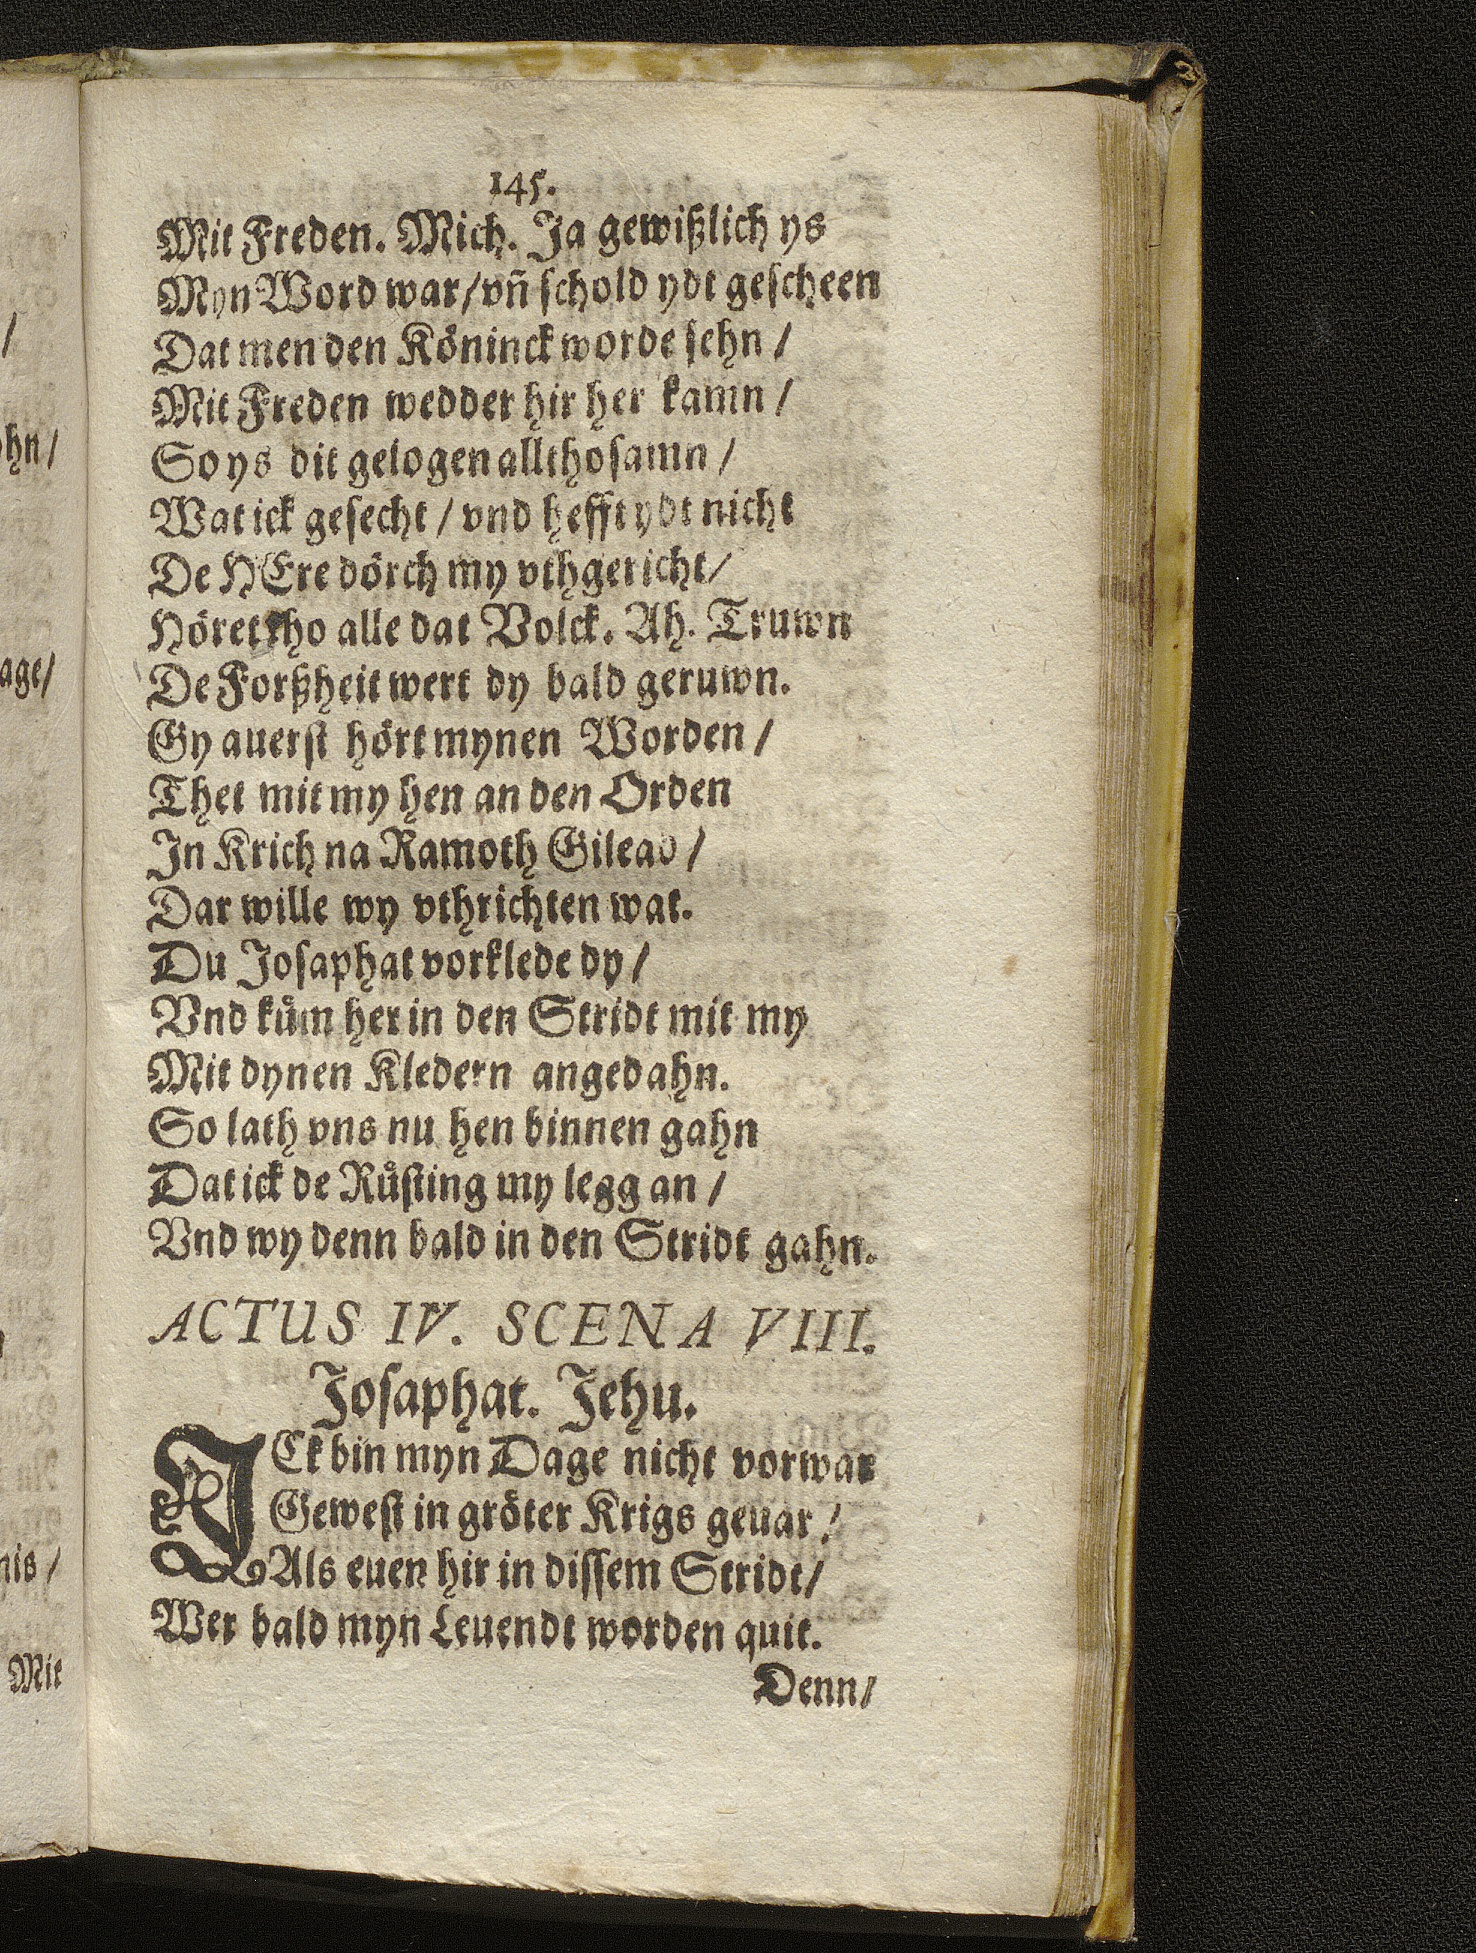 145.
Mit Freden. Mich. Ja gewißlich ys
Myn Word war/vn̄ schold ydt gescheen
Dat men den Köninck worde sehn /
Mit Freden wedder hir her kamn /
So ys dit gelogen allthosamn /
Wat ick gesecht / vnd hefft ydt nicht
De HEre dörch my vthgericht/
Höret tho alle dat Volck. Ah. Truwn
De Forßheit wert dy bald geruwn.
Gy auerst hört mynen Worden /
Thet mit my hen an den Orden
In Krich na Ramoth Gilead /
Dar wille wy vthrichten wat.
Du Josaphat vorklede dy /
Vnd kům her in den Stridt mit my
Mit dynen Kledern angedahn.
So lath vns nu hen binnen gahn
Dat ick de Růsting my legg an /
Vnd wy denn bald in den Stridt gahn.
ACTUS IV. SCENA VIII.
Josaphat. Jehu.
ICk bin myn Dage nicht vorwar
Gewest in gröter Krigs geuar /
Als euen hir in dissem Stridt/
Wer bald myn Leuendt worden quit.
Denn/
hn/
age/
nis /
Mit